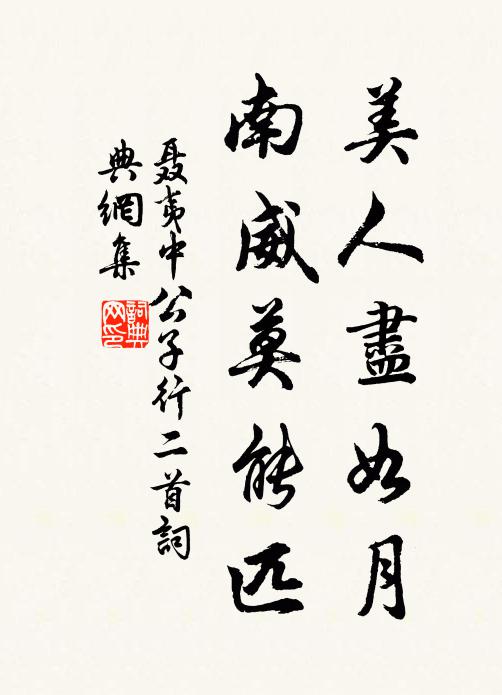 美人盡如月
南威莫能匹
聶夷中公子行二首詞
典網集
詞典
网印